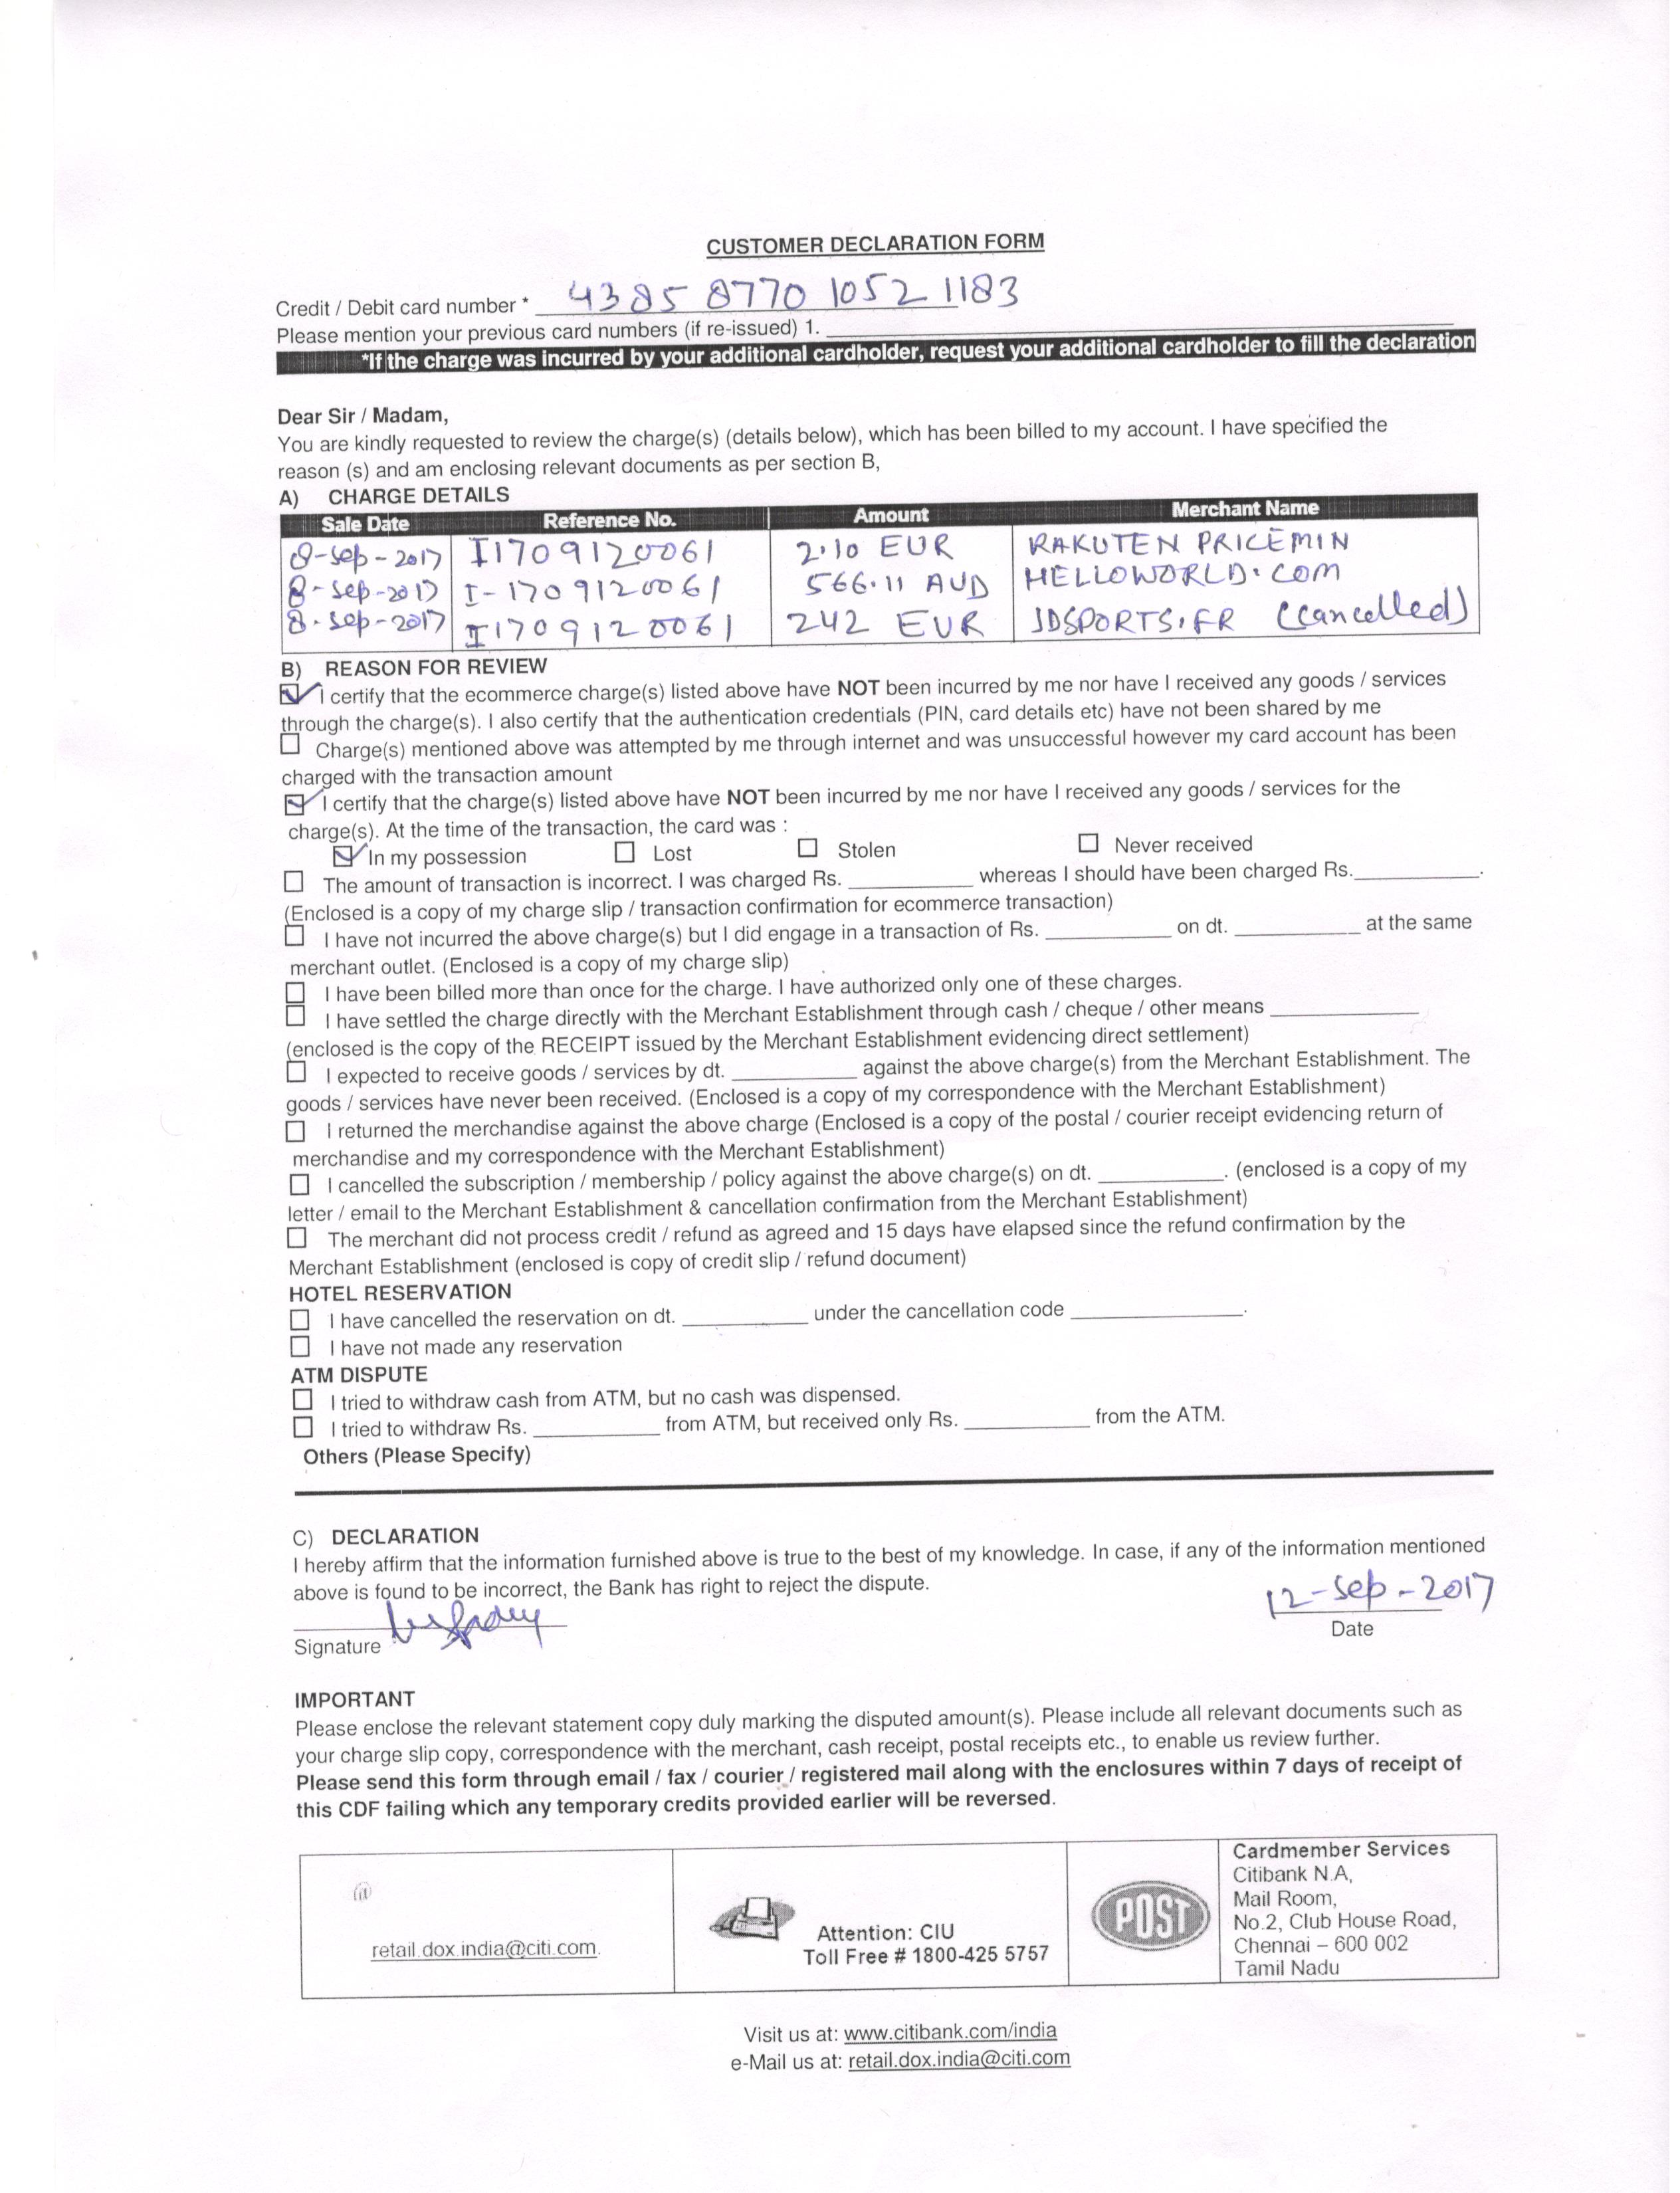 CUSTOMER DECLARATION FORM
Credit / Debit card number * 4385 8770 1052 1183
Please mention your previous card numbers (if re-issued) 1.
*If the charge was incurred by your additional cardholder, request your additional cardholder to fill the declaration
Dear Sir / Madam,
You are kindly requested to review the charge(s) (details below), which has been billed to my account. I have specified the
reason (s) and am enclosing relevant documents as per section B,
A) CHARGE DETAILS
Sale Date Reference No. Amount Merchant Name
8-Sep-2017 I1709120061 2.10 EUR RAKUTEN PRICEMIN
8-Sep-2017 I-1709120061 566.11 AUD HELLOWORLD.COM
8-Sep-2017 I1709120061 242 EUR JDSPORTS.FR (cancelled)
B) REASON FOR REVIEW
I certify that the ecommerce charge(s) listed above have NOT been incurred by me nor have I received any goods / services
through the charge(s). I also certify that the authentication credentials (PIN, card details etc) have not been shared by me
Charge(s) mentioned above was attempted by me through internet and was unsuccessful however my card account has been
charged with the transaction amount
I certify that the charge(s) listed above have NOT been incurred by me nor have I received any goods / services for the
charge(s). At the time of the transaction, the card was :
In my possession Lost Stolen Never received
The amount of transaction is incorrect. I was charged Rs. whereas I should have been charged Rs. .
(Enclosed is a copy of my charge slip / transaction confirmation for ecommerce transaction)
I have not incurred the above charge(s) but I did engage in a transaction of Rs. on dt. at the same
merchant outlet. (Enclosed is a copy of my charge slip)
I have been billed more than once for the charge. I have authorized only one of these charges.
I have settled the charge directly with the Merchant Establishment through cash / cheque / other means
(enclosed is the copy of the RECEIPT issued by the Merchant Establishment evidencing direct settlement)
I expected to receive goods / services by dt. against the above charge(s) from the Merchant Establishment. The
goods / services have never been received. (Enclosed is a copy of my correspondence with the Merchant Establishment)
I returned the merchandise against the above charge (Enclosed is a copy of the postal / courier receipt evidencing return of
merchandise and my correspondence with the Merchant Establishment)
I cancelled the subscription / membership / policy against the above charge(s) on dt. . (enclosed is a copy of my
letter / email to the Merchant Establishment & cancellation confirmation from the Merchant Establishment)
The merchant did not process credit / refund as agreed and 15 days have elapsed since the refund confirmation by the
Merchant Establishment (enclosed is copy of credit slip / refund document)
HOTEL RESERVATION
I have cancelled the reservation on dt. under the cancellation code .
I have not made any reservation
ATM DISPUTE
I tried to withdraw cash from ATM, but no cash was dispensed.
I tried to withdraw Rs. from ATM, but received only Rs. from the ATM.
Others (Please Specify)
C) DECLARATION
I hereby affirm that the information furnished above is true to the best of my knowledge. In case, if any of the information mentioned
above is found to be incorrect, the Bank has right to reject the dispute.
12-Sep-2017
Signature Date
IMPORTANT
Please enclose the relevant statement copy duly marking the disputed amount(s). Please include all relevant documents such as
your charge slip copy, correspondence with the merchant, cash receipt, postal receipts etc., to enable us review further.
Please send this form through email / fax / courier / registered mail along with the enclosures within 7 days of receipt of
this CDF failing which any temporary credits provided earlier will be reversed.
@
retail.dox.india@citi.com.
Attention: CIU
Toll Free # 1800-425 5757
POST
Cardmember Services
Citibank N.A,
Mail Room,
No.2, Club House Road,
Chennai – 600 002
Tamil Nadu
Visit us at: www.citibank.com/india
e-Mail us at: retail.dox.india@citi.com